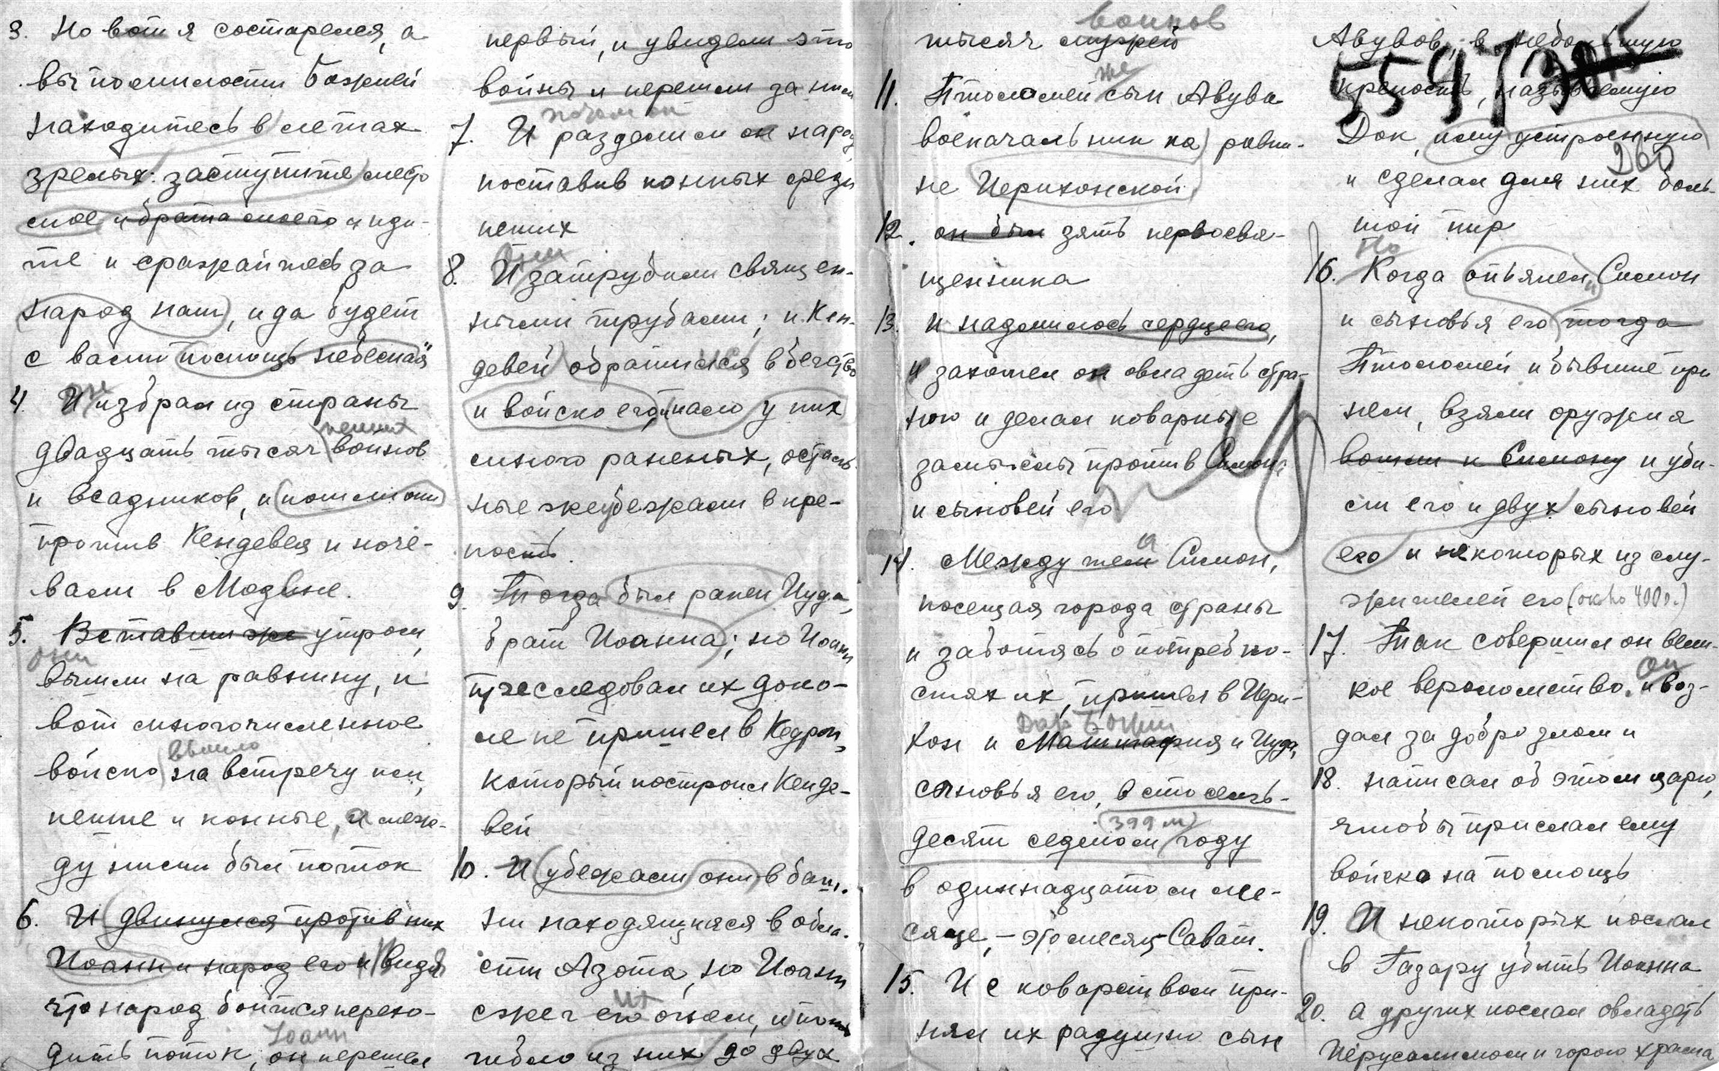 3. Но вот я состарелся, а
вы по милости Божией
находитесь в летах
зрелых: заступите место
мое и брата моего и иди-
те и сражайтесь за
народ наш, и да будет
с вами помощь небесная
же
4. И избрал из страны
пеших
двадцать тысяч воинов
и всадников, и пошли они
против Кендевея и ноче-
вали в Модине.
5. Вставши же утром,
они
вышли на равнину, и
вот многочисленное
вышло
войско на встречу им,
пешие и конные, и меж-
ду ними был поток
6. И двинулся против них
Иоанн и народ его и видя
что народ боится перехо-
Иоанн
дить поток, он перешел
первый, и увидели это
воины и перешли за ним
потом он
7. И разделил он народ,
поставив конных среди
пеших
Они
8. И затрубили священ-
ными трубами; и Кен-
девей обратился в бегство
и войско его, и пало у них
много раненых, осталь-
ные же убежали в кре-
пость.
9. Тогда был ранен Иуда,
брат Иоанна; но Иоанн
преследовал их доко-
ле не пришел в Кедрон,
который построил Кенде-
вей
10. И убежали они в баш-
ни находящиеся в обла-
сти Азота, но Иоанн
их
сжег его огнем, и по
гибло из них до двух
воинов
тысяч мужей
же
11. Птоломей сын Авува
военачальник на равни-
не Иерихонской
12. он был зять первосвя-
щенника
13. и надмилось сердце его,
и захотел он овладеть стра-
ною и делал коварные
замыслы против Симона
и сыновей его
а
14. Между тем Симон,
посещая города страны
и заботясь о потребно-
стях их, пришел в Иери-
Дар Божий
хон и Маттафия и Иуда,
сыновья его, в сто семь-
(399 м)
десят седьмом году
в одиннадцатом ме-
сяце, - это месяц Сават.
15. И с коварством при-
нял их радушно сын
Авувов, в небольшую
крепость, называемую
559/73
Док, ему устроенную
260
и сделал для них боль-
шой пир
Но
16. Когда опьянел Симон
и сыновья его тогда
Птоломей и бывшие при
нем, взяли оружия
вошли к Симону и уби-
ли его и двух сыновей
его и некоторых из слу-
жителей его (около 400 г.)
17. Так совершил он вели-
он
кое вероломство, и воз-
дал за добро злом и
18. написал об этом царю,
чтобы прислал ему
войско на помощь
19. И некоторых послал
в Газару убить Иоанна
20. а других послал овладеть
Иерусалимом и горою храма